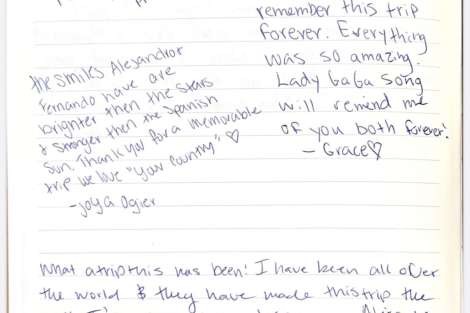 remember this trip
forever. Everything
was so amazing.
Lady GaGa song
will remind me
of you both forever!
- Grace♡
The smiles Alesandro &
Fernando have are
brighter then the stars
& stronger then the Spanish
Sun. Thank you for a memorable
trip we love "your country" ♡
- Joya Ogier
What a trip this has been! I have been all over
the world & they have made this trip the